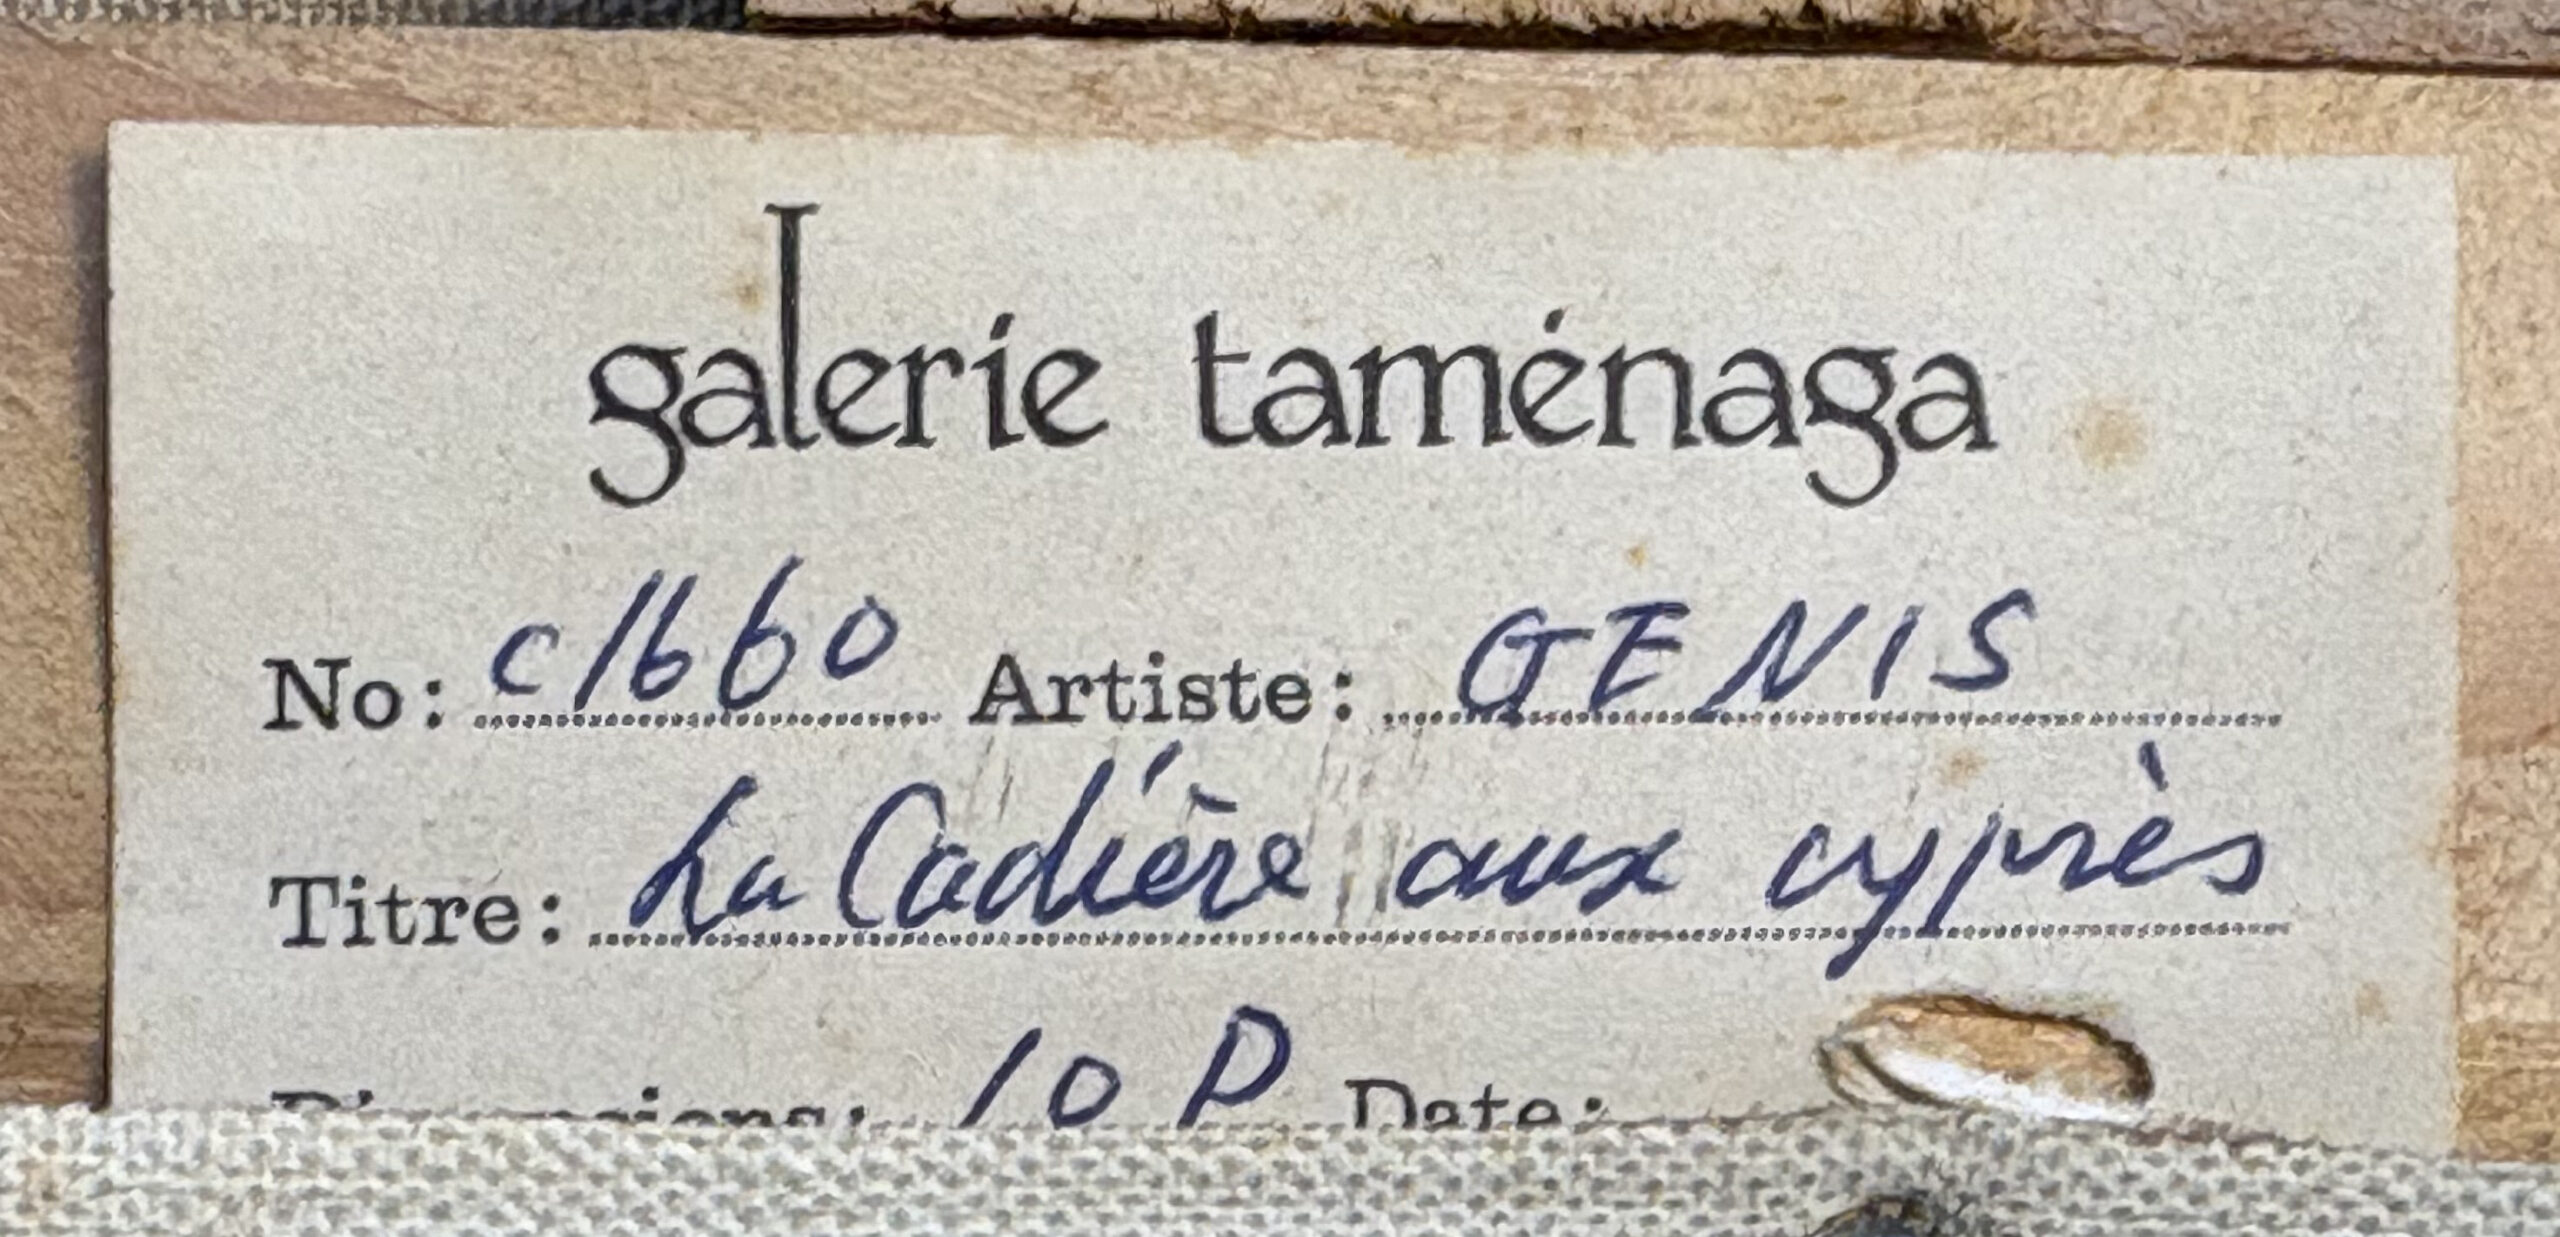 galerie taménaga
No: C1660 Artiste: GENIS
Titre: La Cadière aux cyprès
Dimensions: 10 P Date: